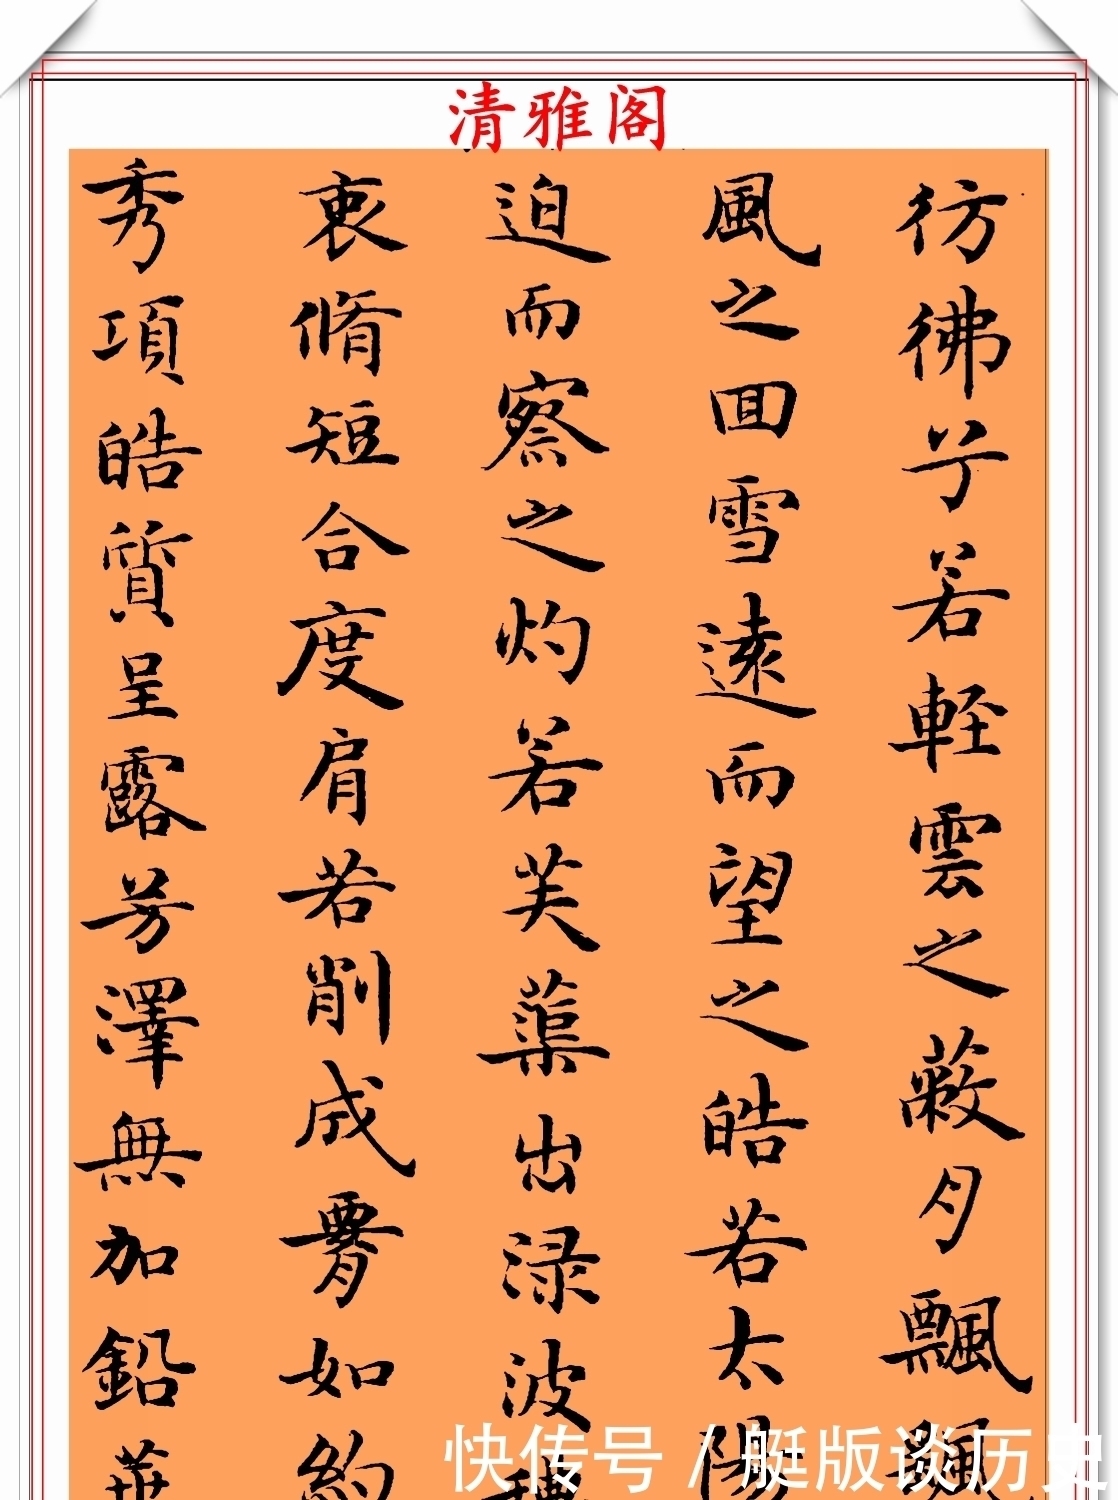 清雅阁
彷彿兮若輕雲之蔽月飄飄
風之回雪遠而望之皓若太陽
迫而察之灼若芙蕖出渌波
衷脩短合度肩若削成署如約
秀項皓質呈露芳澤無加鉛華
快传号/艇版谈历史